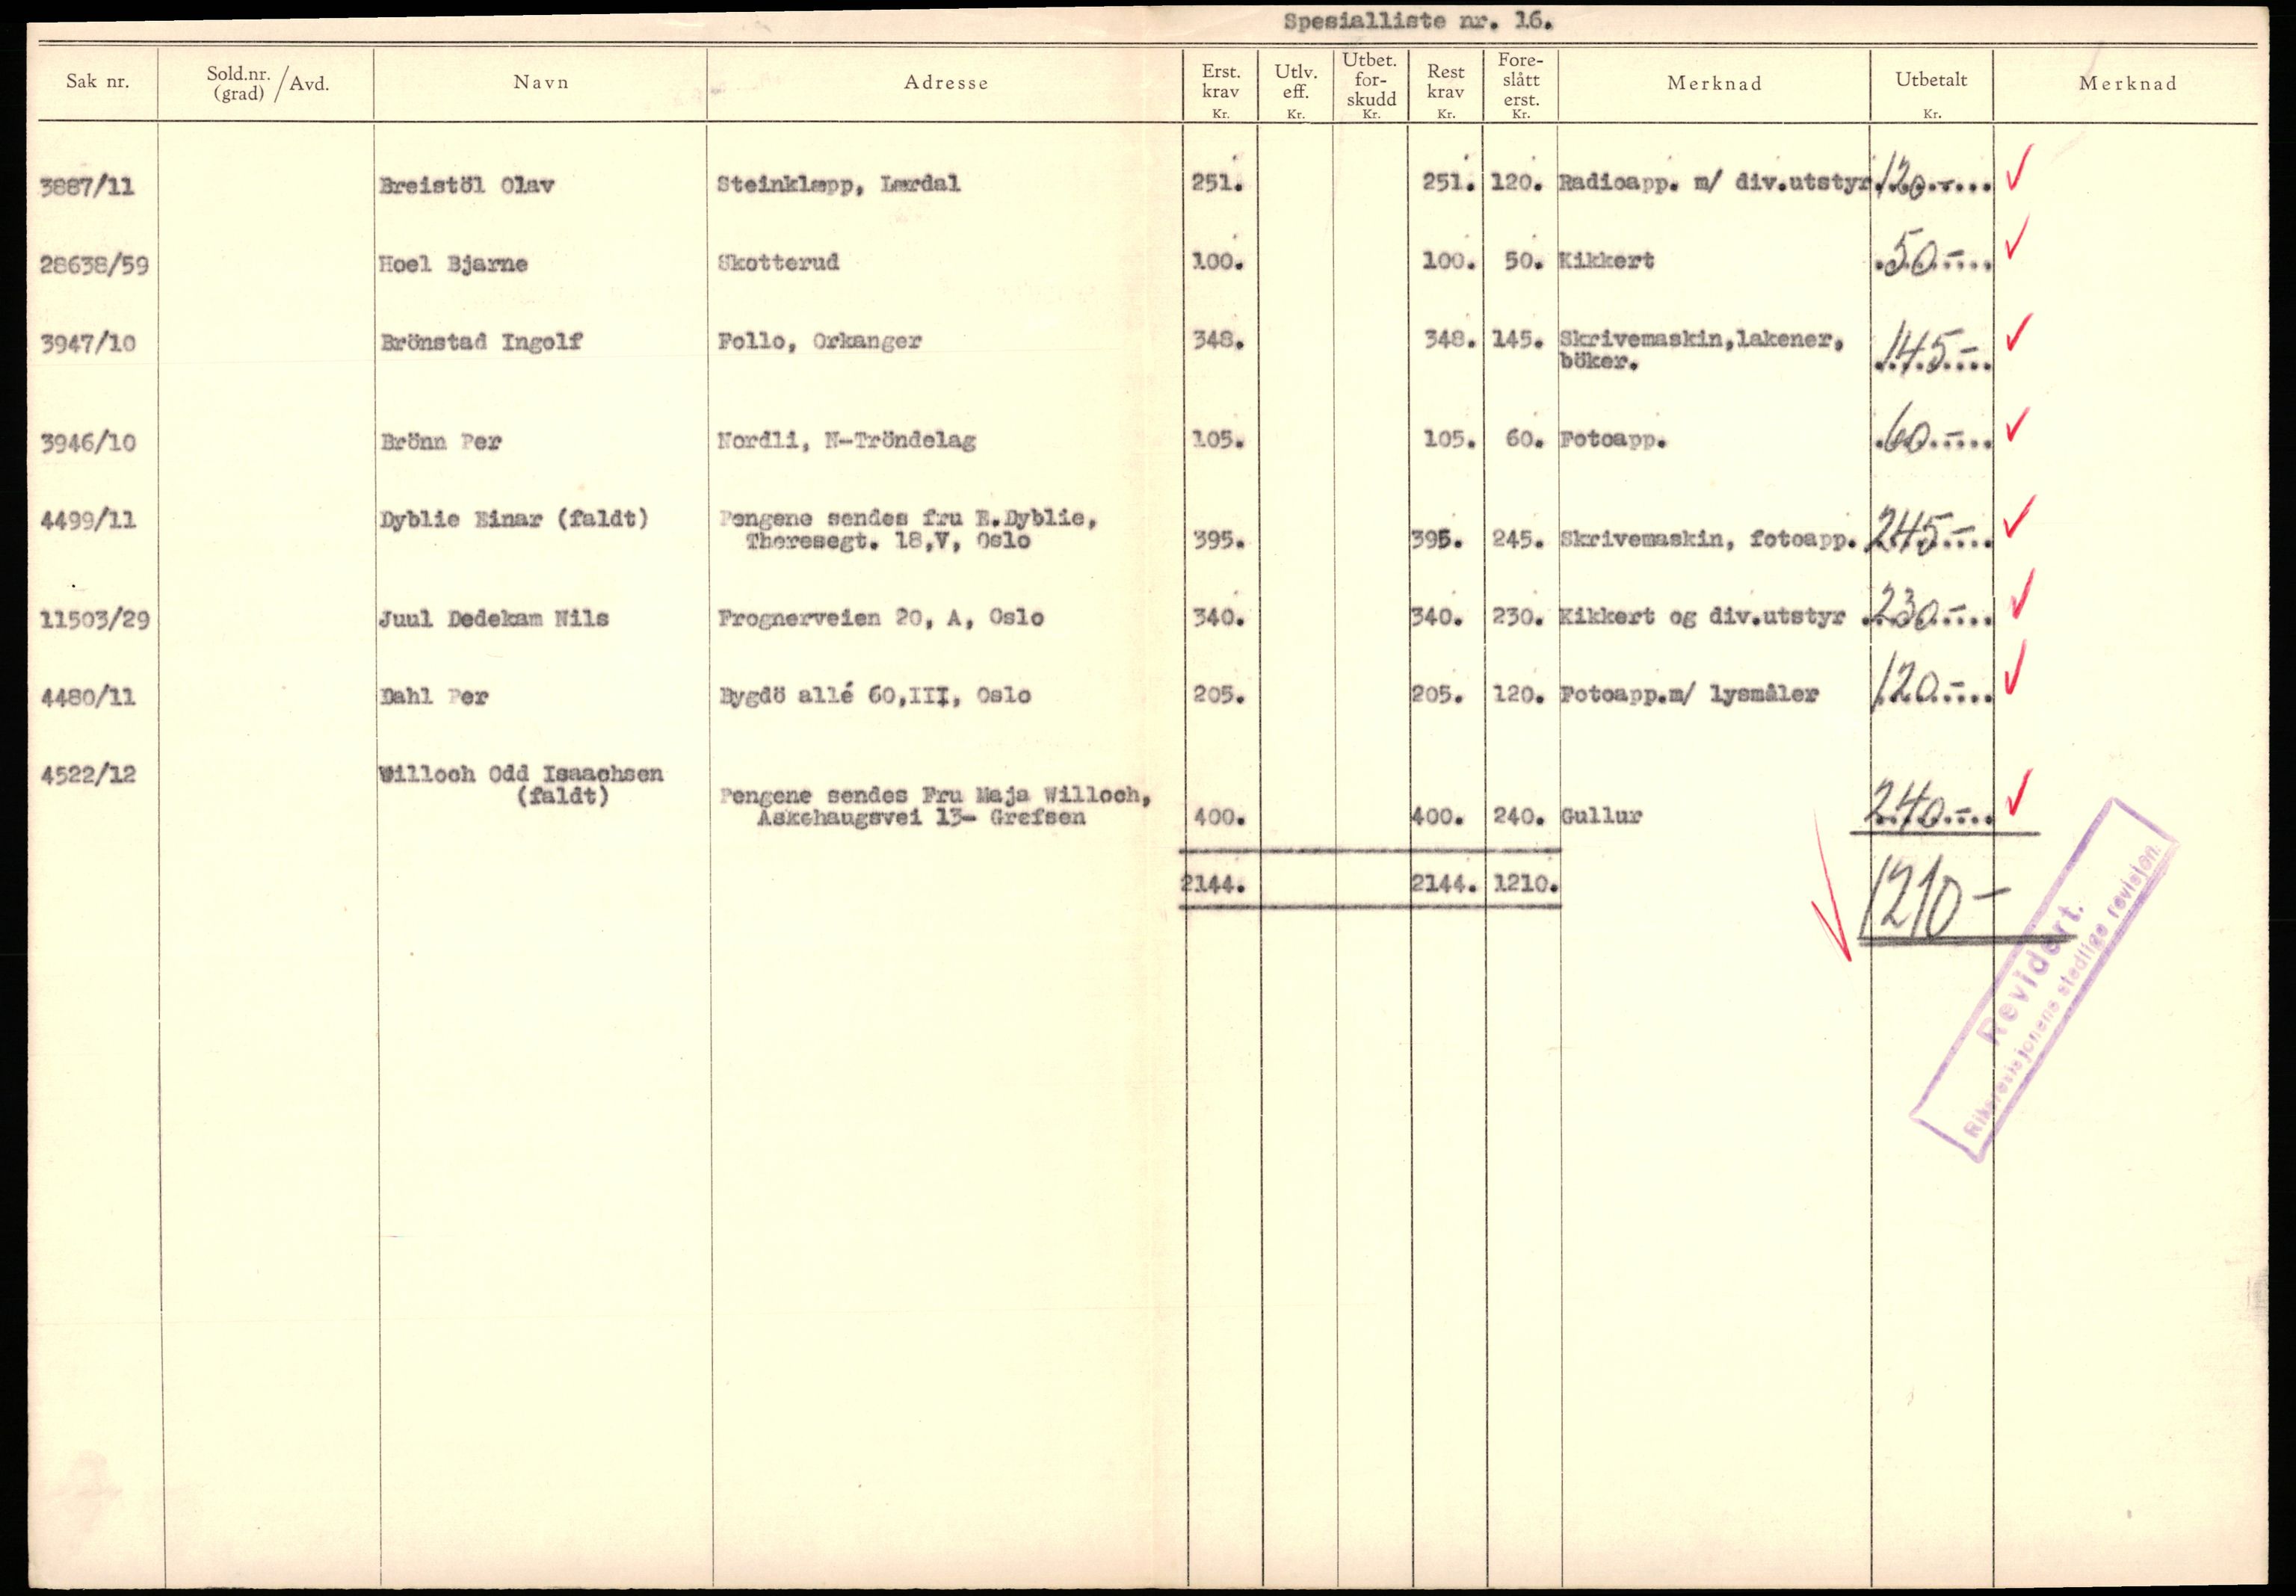 Spesialliste nr. 16.
Sak nr. Sold.nr. (grad) / Avd. Navn Adresse Erst. krav Kr. Utlv. eff. Kr. Utbet. for- skudd Kr. Rest krav Kr. Fore- slått erst. Kr. Merknad Utbetalt Kr. Merknad
3887/11 Breistöl Olav Steinklæpp, Lærdal 251. 251. 120. Radioapp. m/ div.utstyr 120.-
28638/59 Hoel Bjarne Skotterud 100. 100. 50. Kikkert 50.-
3947/10 Brönstad Ingolf Follo, Orkanger 348. 348. 145. Skrivemaskin,lakener, 145.-
böker.
3946/10 Brönn Per Nordli, N-Tröndelag 105. 105. 60. Fotoapp. 60.-
4499/11 Dyblie Einar (faldt) Pengene sendes fru E.Dyblie,
Theresegt. 18,V, Oslo 395. 395. 245. Skrivemaskin, fotoapp. 245.-
11503/29 Juul Dedekam Nils Frognerveien 20, A, Oslo 340. 340. 230. Kikkert og div.utstyr 230.-
4480/11 Dahl Per Bygdö allé 60,III, Oslo 205. 205. 120. Fotoapp.m/ lysmåler 120.-
4522/12 Willoch Odd Isaachsen
(faldt) Pengene sendes Fru Maja Willoch,
Askehaugsvei 13- Grefsen 400. 400. 240. Gullur 240.-
2144. 2144. 1210. 1210-
Revidert.
Riksrevisjonens stedlige revisjon.